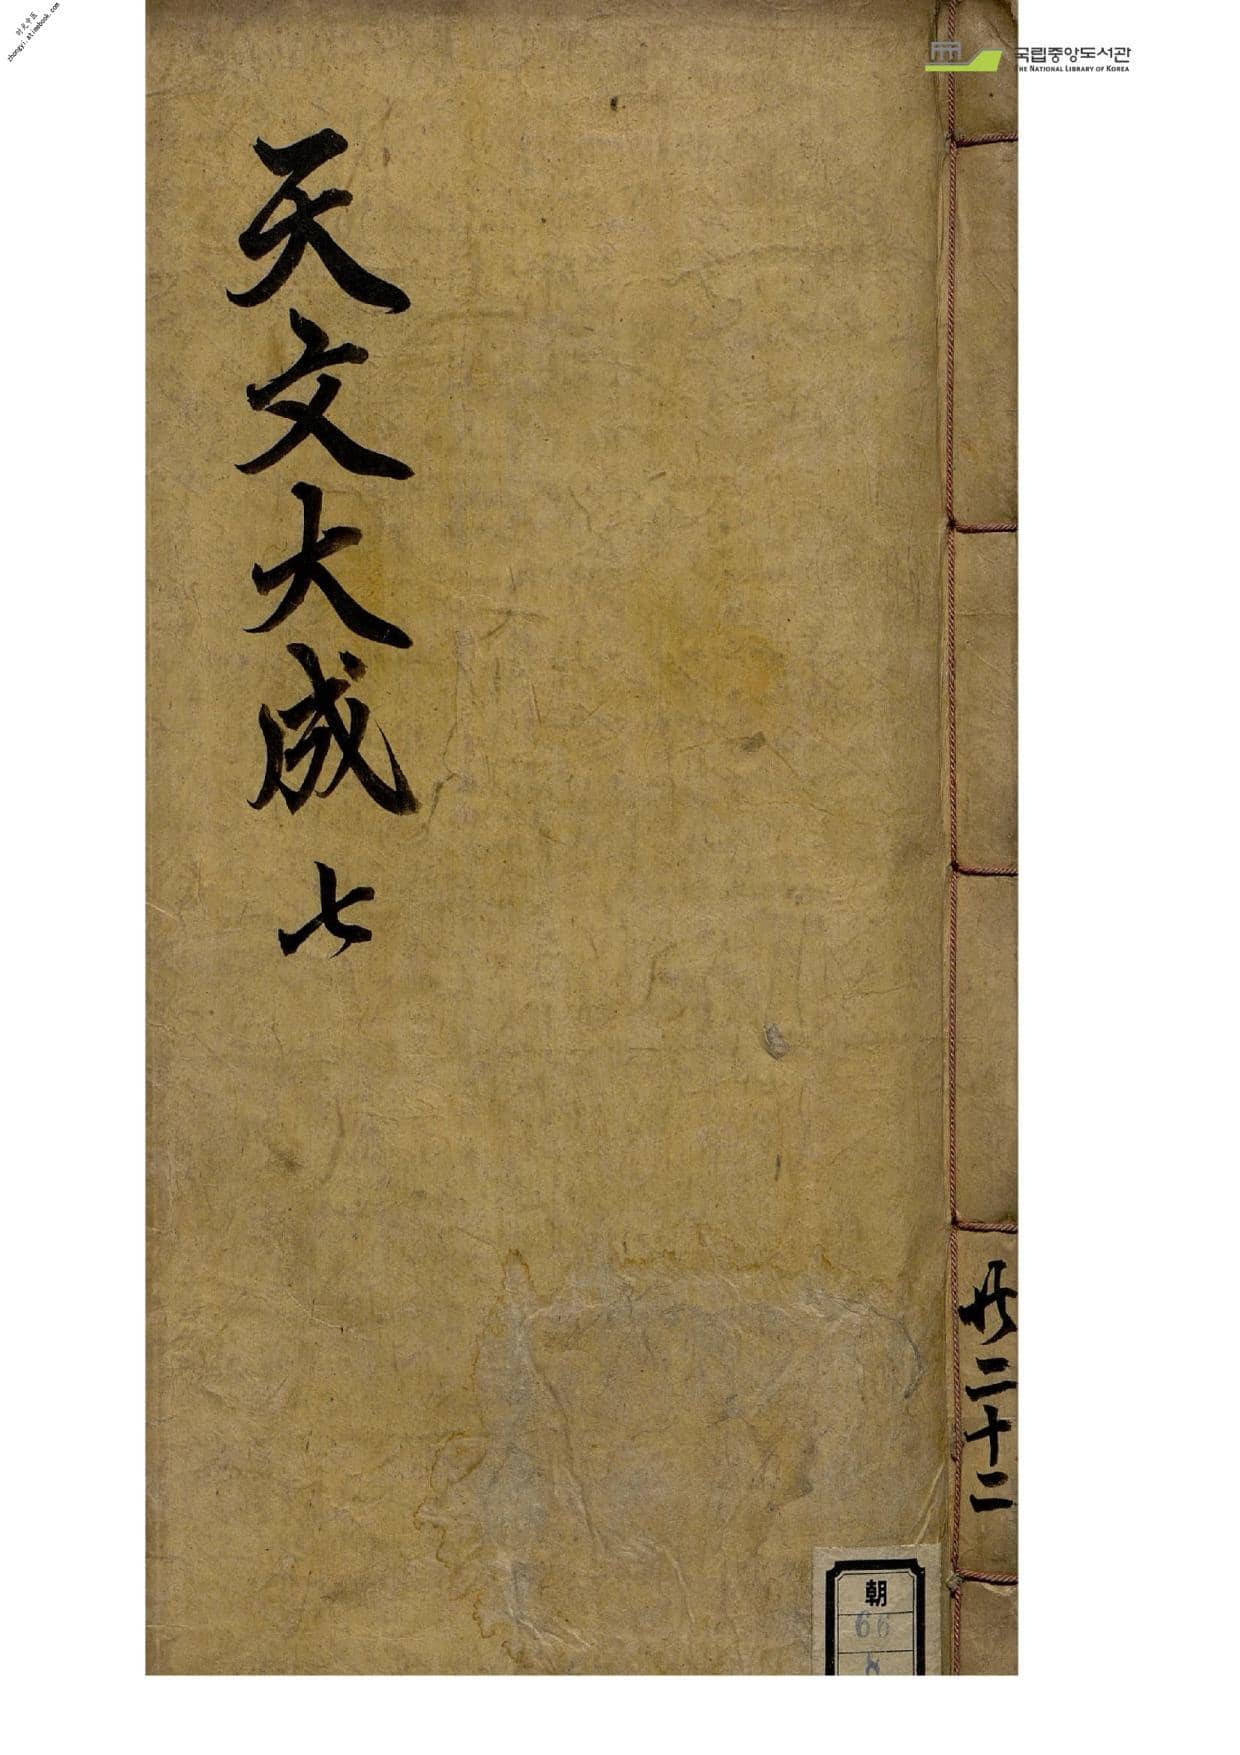 时光中医
zhongyi.atimebook.com
국립중앙도서관
THE NATIONAL LIBRARY OF KOREA
天文大成 七
共二十二
朝
66
8